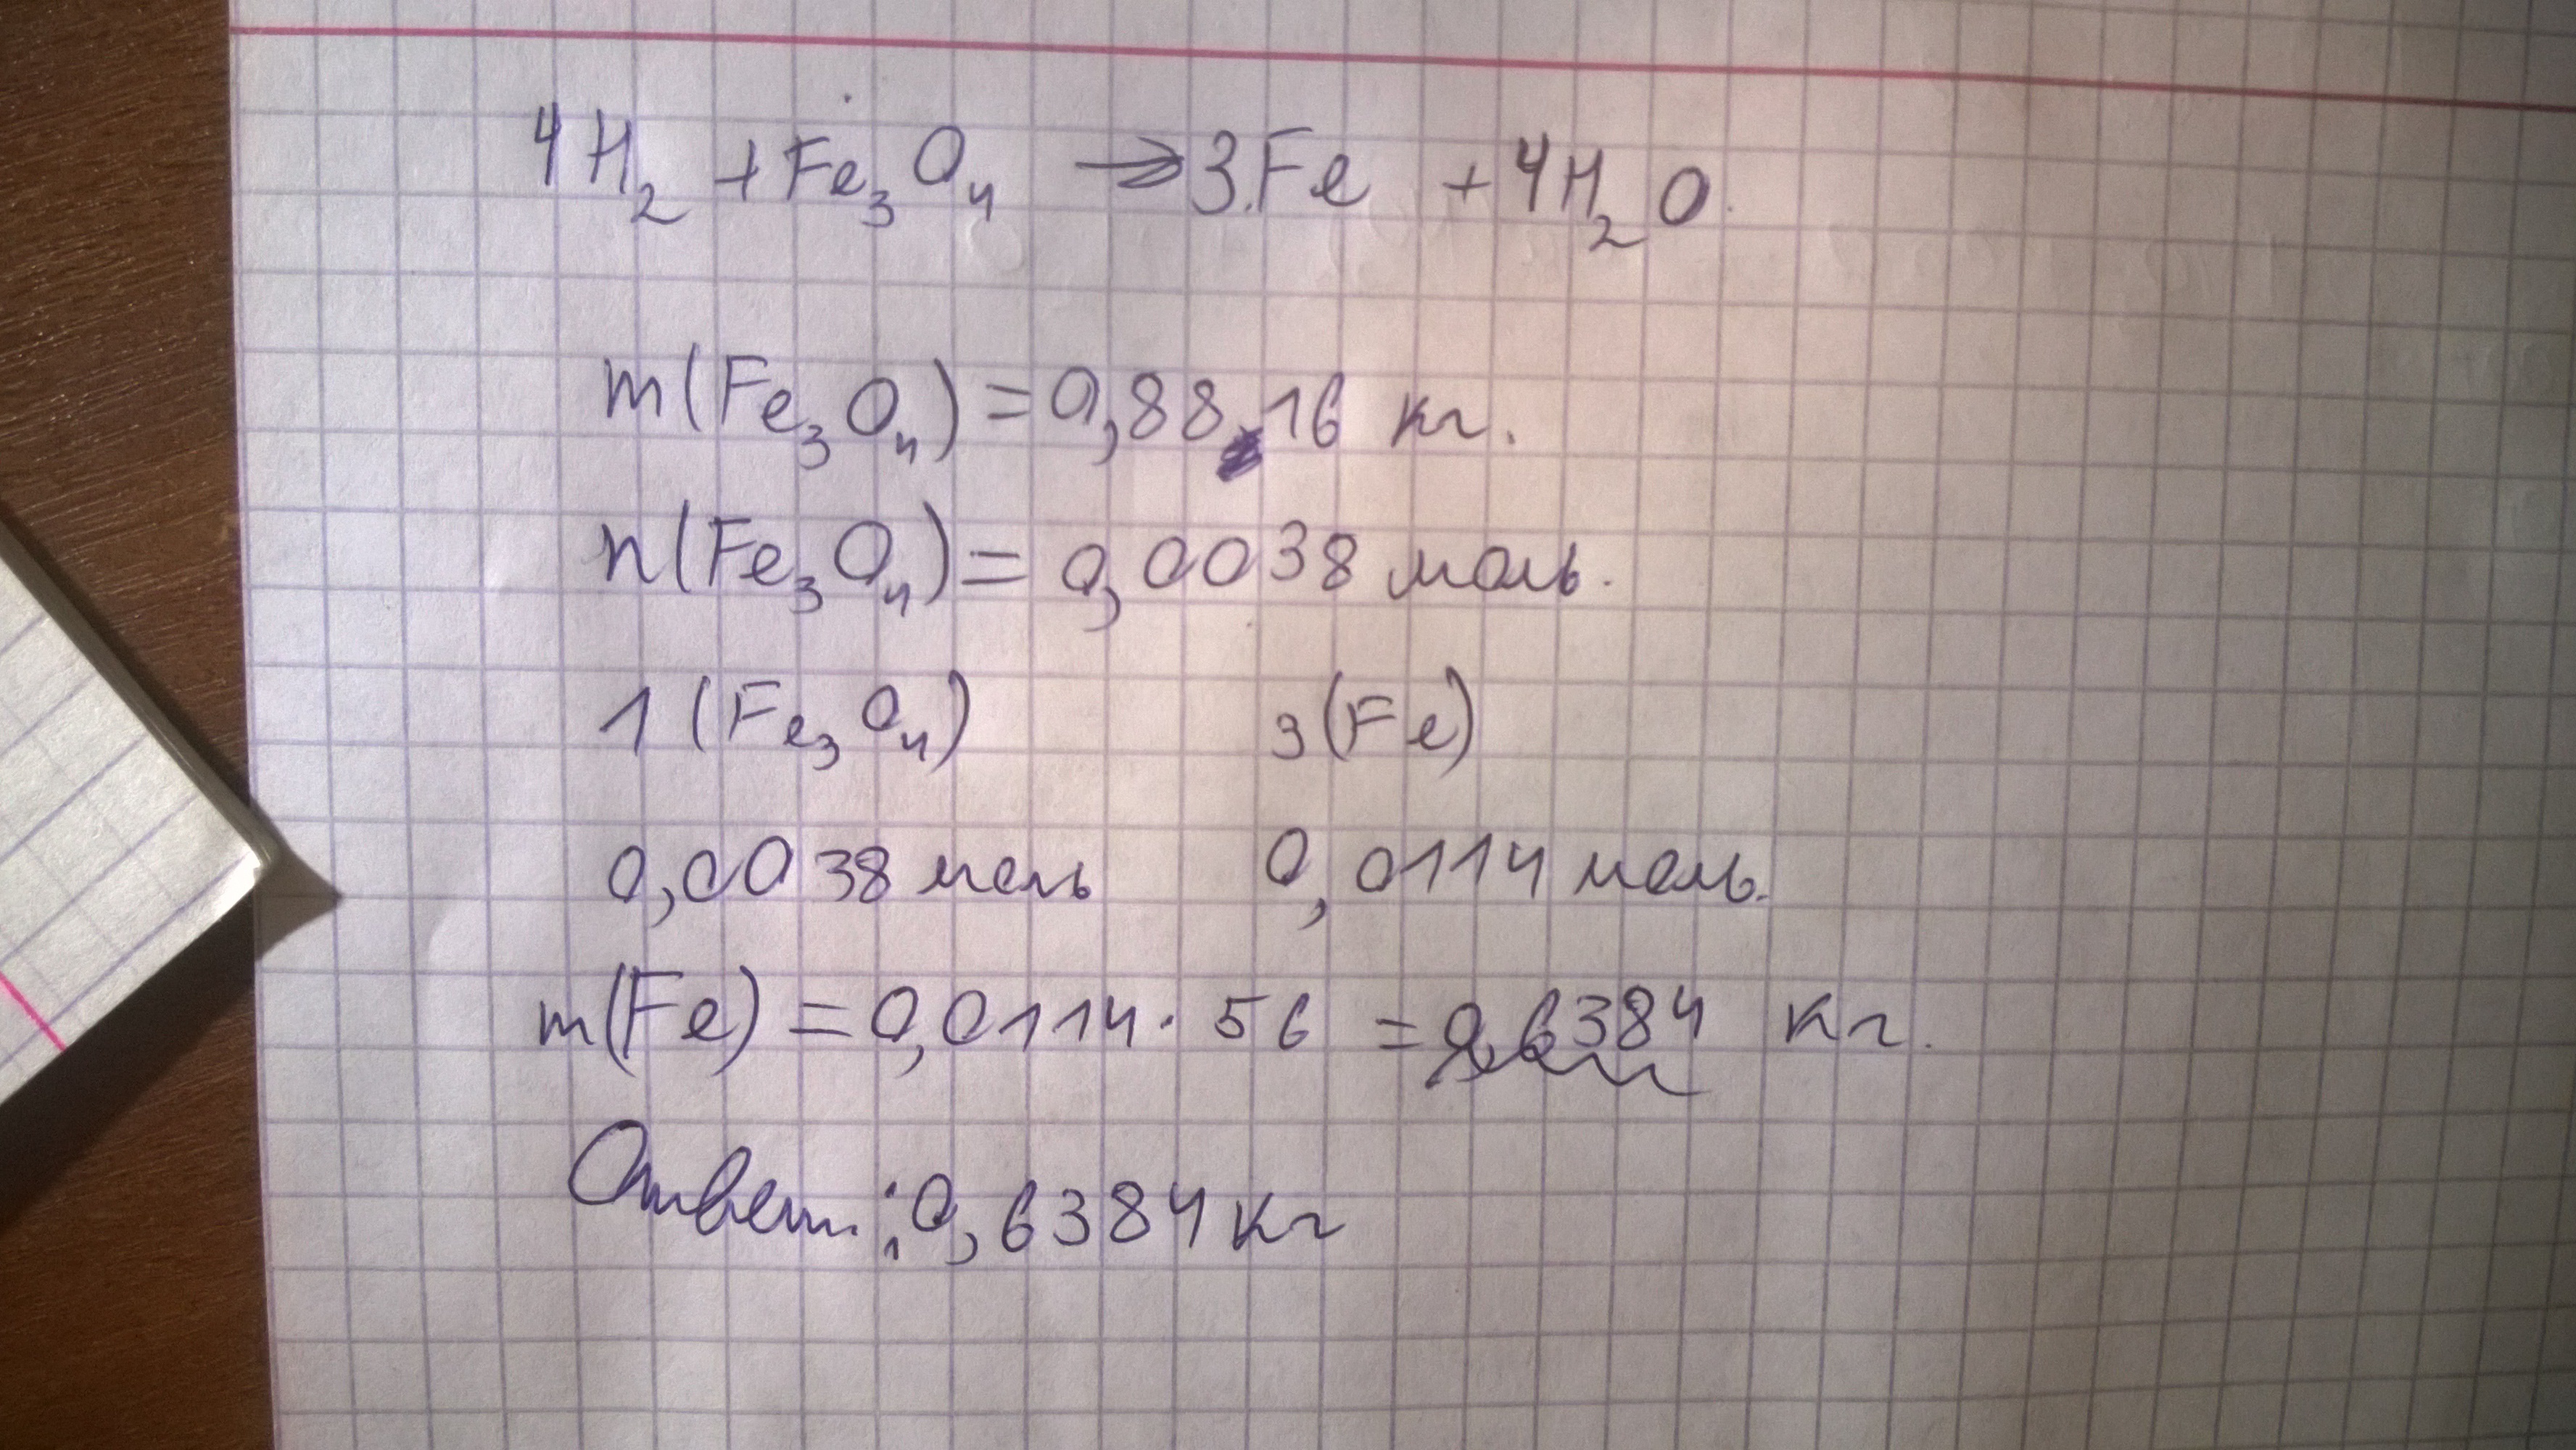 4H₂ + Fe₃O₄ → 3Fe + 4H₂O.
m(Fe₃O₄) = 0,8816 кг.
n(Fe₃O₄) = 0,0038 моль.
1 (Fe₃O₄) 3(Fe)
0,0038 моль 0,0114 моль.
m(Fe) = 0,0114 · 56 = 0,6384 кг.
Ответ: 0,6384 кг